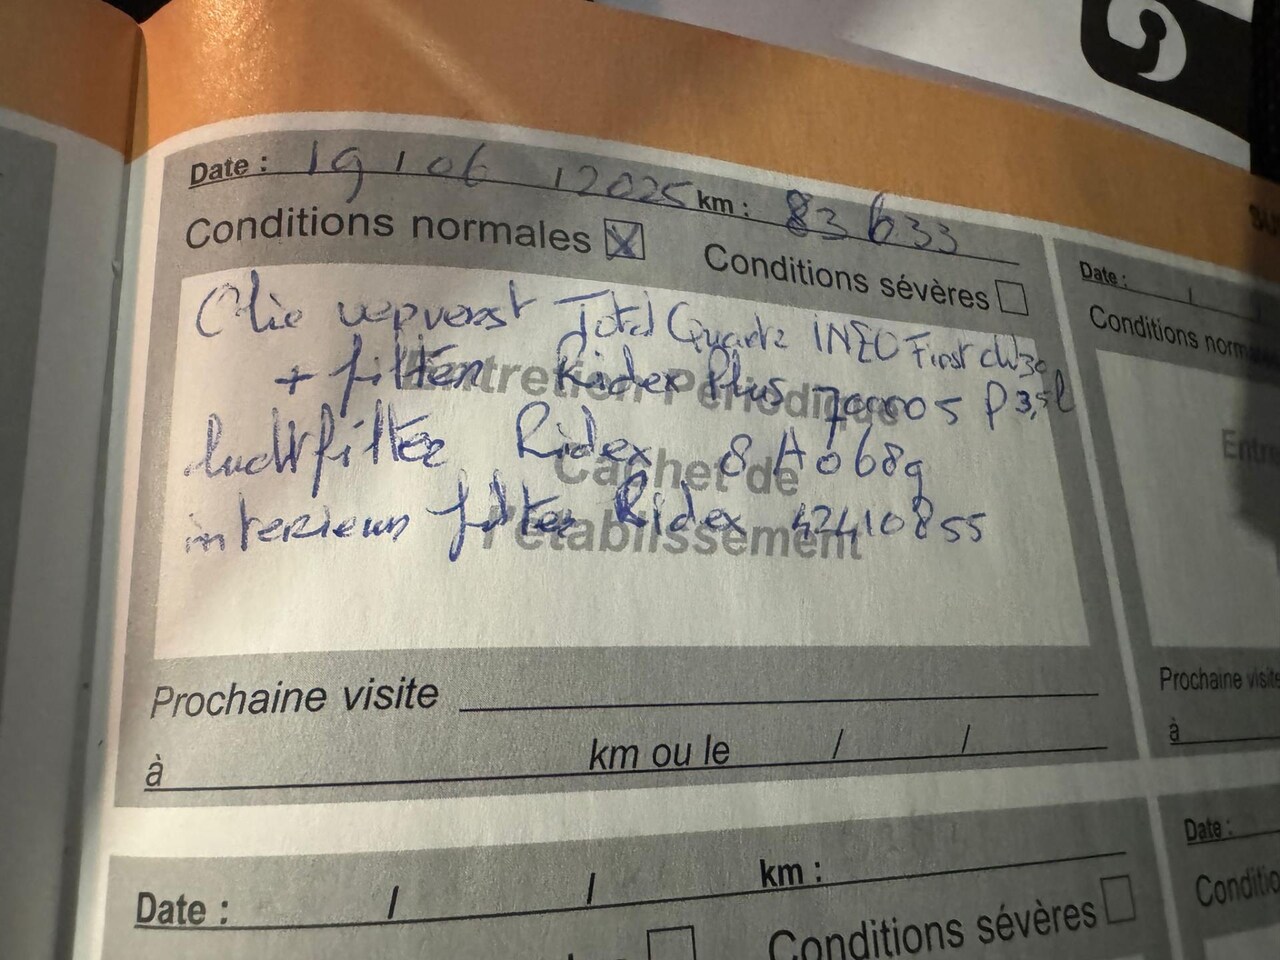 Date : 19 / 06 / 2025 km : 83 633
Conditions normales X Conditions sévères
Olie ververst Total Quartz INEO First 0W30
+ filter Ridex Plus 7O0005P 3,5l
luchtfilter Ridex 8A0689
interieur filter Ridex 424I0855
Entretien Périodique
Cachet de
l'établissement
Prochaine visite
à km ou le / /
Date : / / km :
Conditions sévères
Date : /
Conditions norm
Entre
Prochaine visite
à
Date :
Conditio